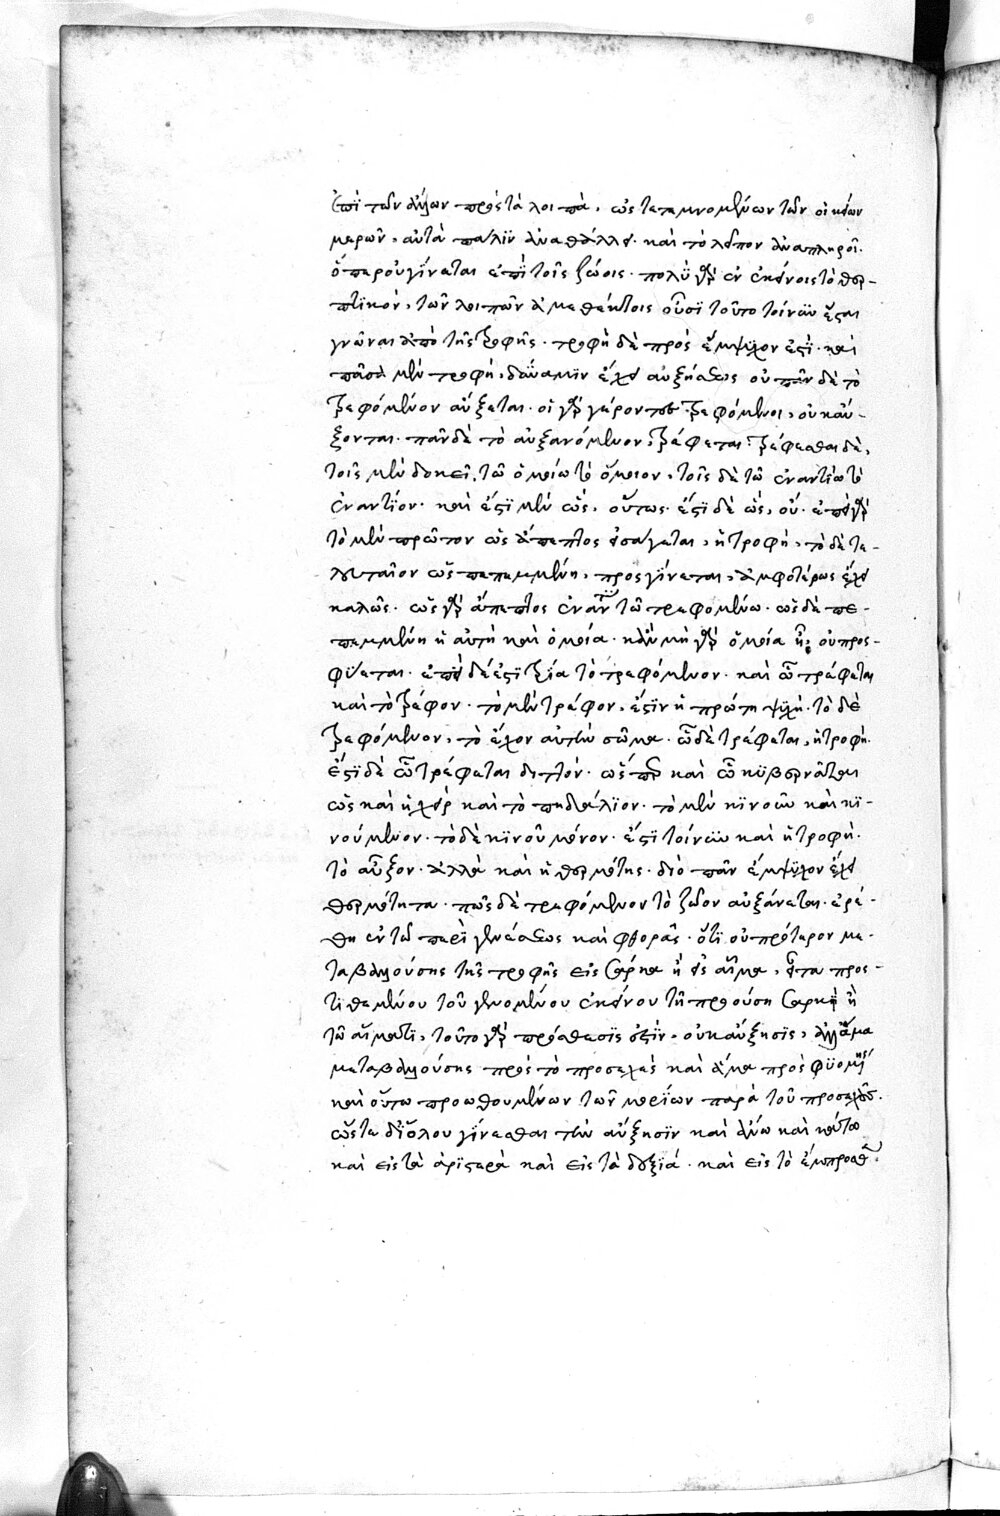 ἐπὶ τῶν ἄλλων πρὸς τὰ λοιπά. ὡς τετμημένων τῶν οἰκείων
μερῶν, αὐτὰ πάλιν ἀναθάλλει. καὶ τὸ λεῖπον ἀναπληροῖ.
ὅπερ οὐ γίνεται ἐπὶ τοῖς ζώοις. πολὺ γὰρ ἐν ἐκείνοις τὸ θρε-
πτικὸν, τῶν λοιπῶν ἀμεθέκτοις οὖσι τοῦτο τοίνυν ἔσται
γνῶναι ἀπὸ τῆς τροφῆς. τροφὴ δὲ πρὸς ἔμψυχον ἐστί. καὶ
πᾶσα μὲν τροφὴ, δύναμιν ἔχει αὐξήσεως οὐ πᾶν δὲ τὸ
τρεφόμενον αὔξεται. οἱ γὰρ γέροντες τρεφόμενοι, οὐκ αὔ-
ξονται. πᾶν δὲ τὸ αὐξανόμενον, τρέφεται. τρέφεσθαι δὲ,
τοῖς μὲν δοκεῖ, τῶ ὁμοίω τὸ ὅμοιον, τοῖς δὲ τῶ ἐναντίω τὸ
ἐναντίον. καὶ ἔστι μὲν ὡς, οὕτως. ἔστι δὲ ὡς, οὔ. ἐπεὶ γὰρ
τὸ μὲν πρῶτον ὡς ἄπεπτος εἰσάγεται, ἡ τροφὴ, τὸ δὲ τε-
λευταῖον ὡς πεπεμμένη, προσγίνεται, ἀμφοτέρως ἔχει
καλῶς. ὡς γὰρ ἄπεπτος ἐναντία τῶ τρεφομένω. ὡς δὲ πε-
πεμμένη ἡ αὐτὴ καὶ ὁμοία. κἂν μὴ γὰρ ὁμοία ἦ, οὐ προσ-
φύεται. ἐπεὶ δέ ἐστι τρία τὸ τρεφόμενον. καὶ ὧ τρέφεται
καὶ τὸ τρέφον. τὸ μὲν τρέφον, ἐστὶν ἡ πρώτη ψυχή. τὸ δὲ
τρεφόμενον, τὸ ἔχον αὐτὴν σῶμα. ὧ δὲ τρέφεται, ἡ τροφή.
ἔστι δὲ ὧ τρέφεται διττόν. ὥσπερ καὶ ὧ κυβερνᾶται
ὡς καὶ ἡ χεὶρ καὶ τὸ πηδάλιον. τὸ μὲν κινοῦν καὶ κι-
νούμενον. τὸ δὲ κινοῦν μόνον. ἔστι τοίνυν καὶ ἡ τροφὴ.
τὸ αὖξον. ἀλλὰ καὶ ἡ θερμότης. διὸ πᾶν ἔμψυχον ἔχει
θερμότητα. πῶς δὲ τρεφόμενον τὸ ζῶον αὐξάνεται. ἐρέ-
θη ἐν τῶ περὶ γενέσεως καὶ φθορᾶς. ὅτι οὐ πρότερον με-
ταβαλλούσης τῆς τροφῆς εἰς σάρκα ἢ εἰς αἷμα, εἶτα προσ-
τιθεμένου τοῦ γενομένου ἐκείνου τῆ προούση σαρκὶ ἢ
τῶ αἵματι, τοῦτο γὰρ πρόσθεσις ἐστὶν. οὐκ αὔξησις, ἀλλ' ἅμα
μεταβαλλούσης πρὸς τὸ προσεχὲς καὶ ἅμα προσφυομένης
καὶ οὕτω προωθουμένων τῶν μορίων παρὰ τοῦ προσελθόντος.
ὥστε δι' ὅλου γίνεσθαι τὴν αὔξησιν καὶ ἄνω καὶ κάτω
καὶ εἰς τὰ ἀριστερὰ καὶ εἰς τὰ δεξιά. καὶ εἰς τὸ ἔμπροσθεν.